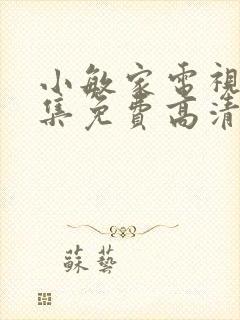 小敏家電視
集免費高清
蘇藝